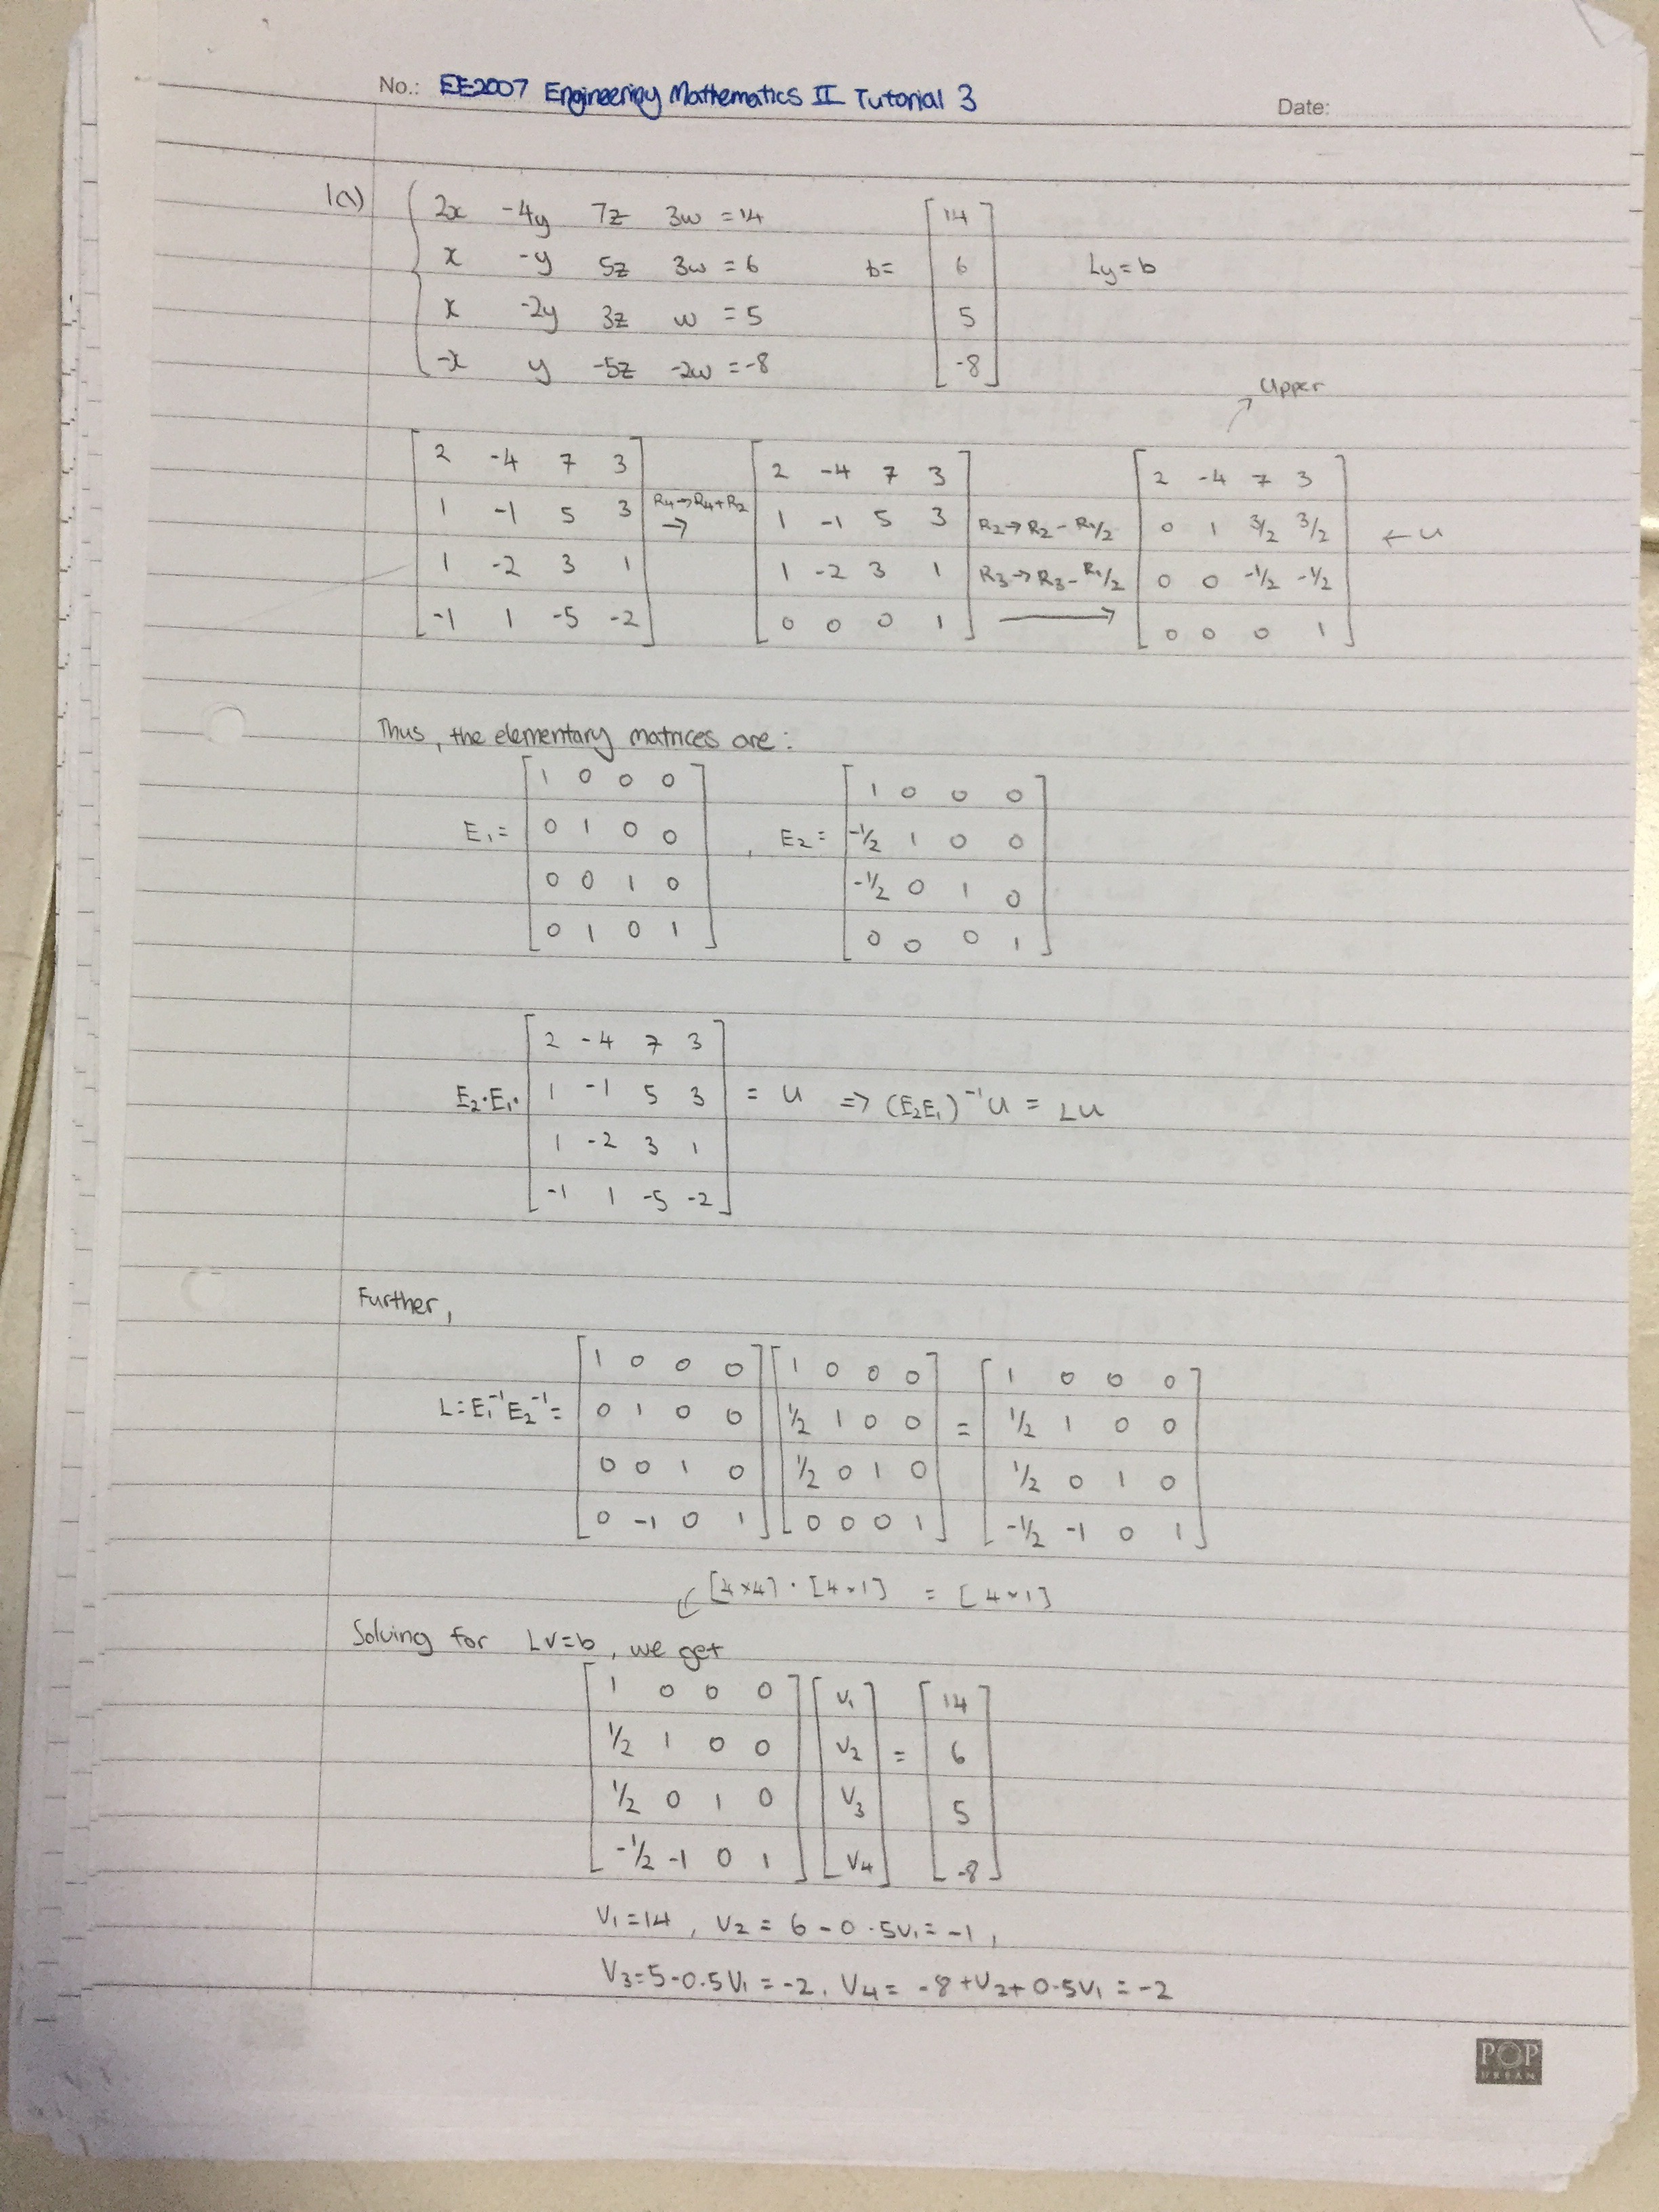 No.: EE2007 Engineering Mathematics II Tutorial 3
Date:
1(a)
2x -4y 7z 3w = 14
x -y 5z 3w = 6
x -2y 3z w = 5
-x y -5z -2w = -8
b =
14
6
5
-8
Ly = b
Upper
2 -4 7 3
1 -1 5 3
1 -2 3 1
-1 1 -5 -2
R4→R4+R2
→
2 -4 7 3
1 -1 5 3
1 -2 3 1
0 0 0 1
R2→R2 - R1/2
R3→R3 - R1/2
→
2 -4 7 3
0 1 3/2 3/2
0 0 -1/2 -1/2
0 0 0 1
← U
Thus, the elementary matrices are:
E1 =
1 0 0 0
0 1 0 0
0 0 1 0
0 1 0 1
, E2 =
1 0 0 0
-1/2 1 0 0
-1/2 0 1 0
0 0 0 1
E2·E1·
2 -4 7 3
1 -1 5 3
1 -2 3 1
-1 1 -5 -2
= U => (E2E1)⁻¹U = LU
Further,
L = E1⁻¹E2⁻¹ =
1 0 0 0
0 1 0 0
0 0 1 0
0 -1 0 1
1 0 0 0
1/2 1 0 0
1/2 0 1 0
0 0 0 1
=
1 0 0 0
1/2 1 0 0
1/2 0 1 0
-1/2 -1 0 1
[4×4] · [4×1] = [4×1]
Solving for Lv=b, we get
1 0 0 0
1/2 1 0 0
1/2 0 1 0
-1/2 -1 0 1
V1
V2
V3
V4
=
14
6
5
-8
V1 = 14, V2 = 6 - 0.5V1 = -1,
V3 = 5 - 0.5V1 = -2, V4 = -8 + V2 + 0.5V1 = -2
POP
URBAN